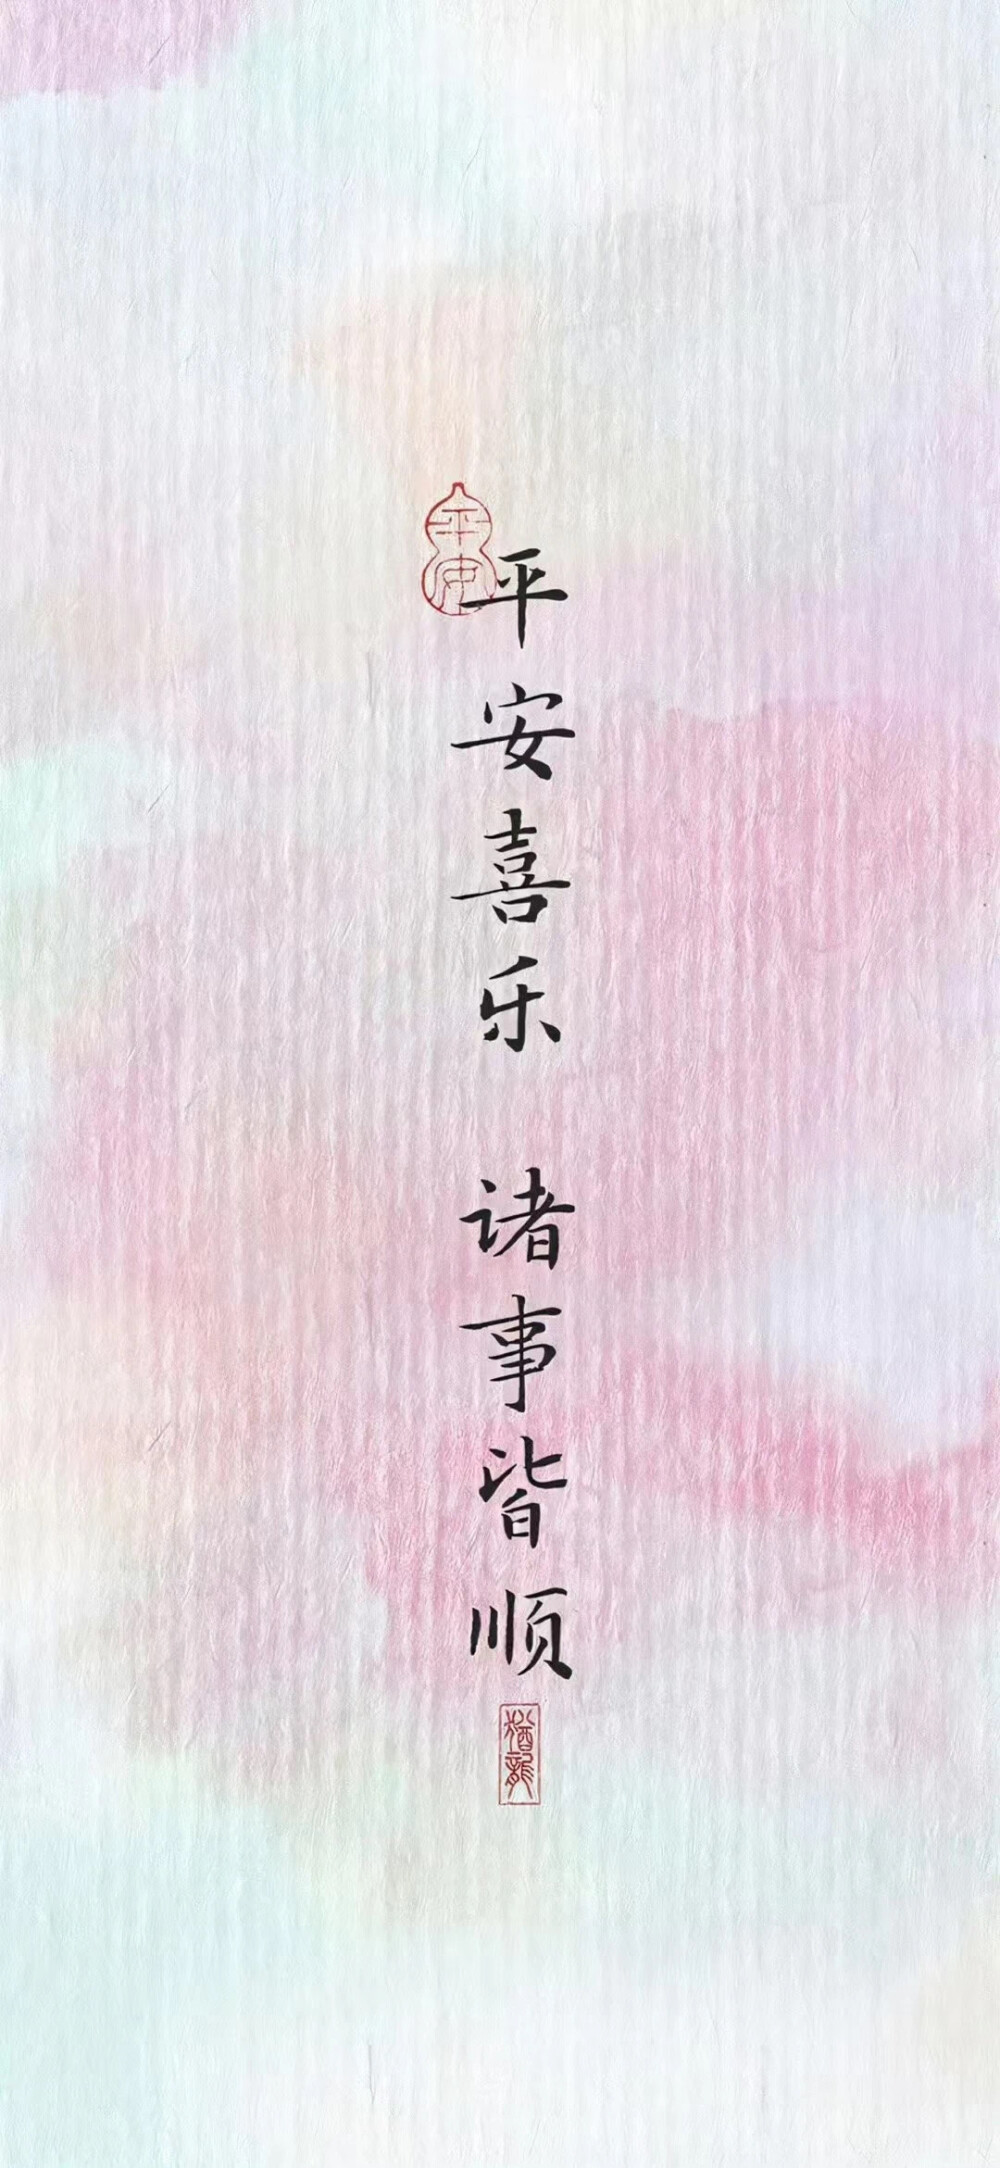 平安
平安喜乐 诸事皆顺